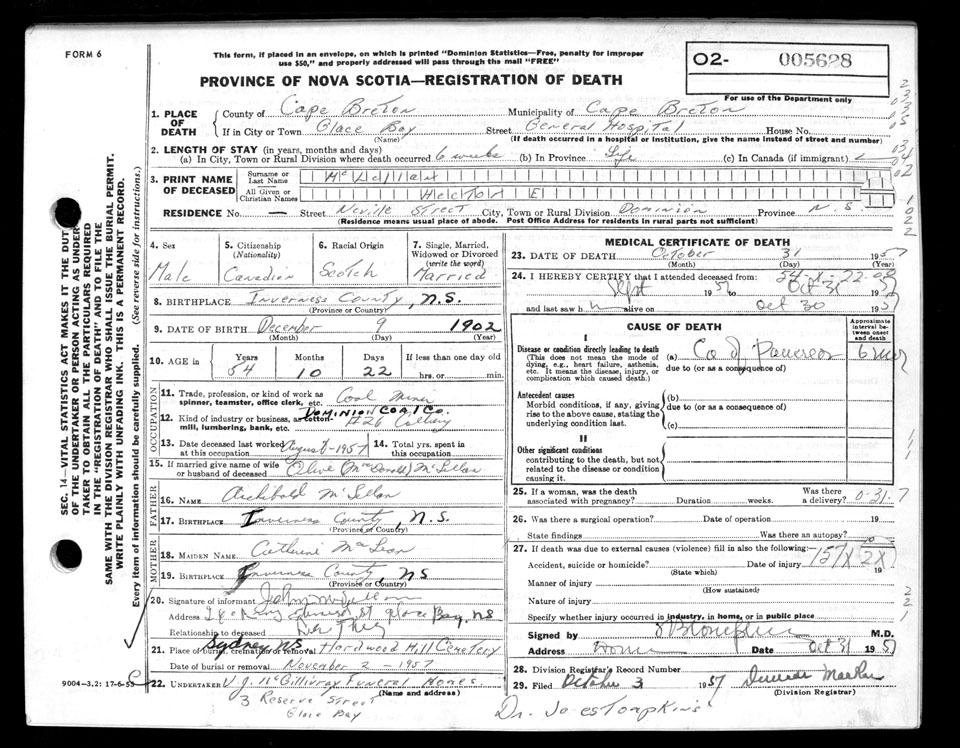 FORM 6
This form, if placed in an envelope, on which is printed "Dominion Statistics—Free, penalty for improper
use $50," and properly addressed will pass through the mail "FREE"
O2- 005628
For use of the Department only
PROVINCE OF NOVA SCOTIA—REGISTRATION OF DEATH
SEC. 14—VITAL STATISTICS ACT MAKES IT THE DUTY
OF THE UNDERTAKER OR PERSON ACTING AS UNDER-
TAKER TO OBTAIN ALL THE PARTICULARS REQUIRED
IN THE "REGISTRATION OF DEATH" AND TO FILE THE
SAME WITH THE DIVISION REGISTRAR WHO SHALL ISSUE THE BURIAL PERMIT.
WRITE PLAINLY WITH UNFADING INK. THIS IS A PERMANENT RECORD.
Every item of information should be carefully supplied. (See reverse side for instructions.)
1. PLACE OF DEATH
County of Cape Breton Municipality of Cape Breton
If in City or Town Glace Bay Street General Hospital House No.
(Name) (If death occurred in a hospital or institution, give the name instead of street and number)
2. LENGTH OF STAY (in years, months and days)
(a) In City, Town or Rural Division where death occurred 6 weeks (b) In Province Life (c) In Canada (if immigrant)
3. PRINT NAME OF DECEASED
Surname or Last Name McLellan
All Given or Christian Names Hector E
RESIDENCE No. — Street Neville Street City, Town or Rural Division Dominion Province N.S
(Residence means usual place of abode. Post Office Address for residents in rural parts not sufficient)
4. Sex Male
5. Citizenship (Nationality) Canadian
6. Racial Origin Scotch
7. Single, Married, Widowed or Divorced (write the word) Married
8. BIRTHPLACE Inverness County, N.S.
(Province or Country)
9. DATE OF BIRTH December 9 1902
(Month) (Day) (Year)
10. AGE in Years 54 Months 10 Days 22 If less than one day old
hrs. or min.
OCCUPATION
11. Trade, profession, or kind of work as
spinner, teamster, office clerk, etc. Coal Miner
12. Kind of industry or business, as cotton-
mill, lumbering, bank, etc. DOMINION COAL CO. #26 Colliery
13. Date deceased last worked at this occupation August-1957
14. Total yrs. spent in this occupation
15. If married give name of wife
or husband of deceased Olive (MacDonald) McLellan
FATHER
16. NAME Archibald McLellan
17. BIRTHPLACE Inverness County, N.S.
(Province or Country)
MOTHER
18. MAIDEN NAME Catherine MacLean
19. BIRTHPLACE Inverness County NS
(Province or Country)
20. Signature of informant John McLellan
Address St Glace Bay, NS
Relationship to deceased Brother
21. Place of burial, cremation or removal Sydney NS Hardwood Hill Cemetery
Date of burial or removal November 2-1957
22. UNDERTAKER V. J. McGillivray Funeral Homes.
(Name and address)
3 Reserve Street
Glace Bay
9004-3.2: 17-6-55
MEDICAL CERTIFICATE OF DEATH
23. DATE OF DEATH October 31 1957
(Month) (Day) (Year)
54-X-22-
24. I HEREBY CERTIFY that I attended deceased from:
Sept 1957 Oct 31 1957
and last saw h alive on Oct 30 1957
CAUSE OF DEATH
Approximate interval between onset and death
I
Disease or condition directly leading to death
(This does not mean the mode of
dying, e.g., heart failure, asthenia,
etc. It means the disease, injury, or
complication which caused death.)
(a) Ca of Pancreas 6 mos
due to (or as a consequence of)
Antecedent causes
Morbid conditions, if any, giving
rise to the above cause, stating the
underlying condition last.
(b)
due to (or as a consequence of)
(c)
II
Other significant conditions
contributing to the death, but not
related to the disease or condition
causing it.
25. If a woman, was the death
associated with pregnancy? Duration weeks. Was there a delivery?
0-31-7
26. Was there a surgical operation? Date of operation 19
State findings Was there an autopsy?
27. If death was due to external causes (violence) fill in also the following:— 157X 2X
Accident, suicide or homicide? Date of injury 19
(State which)
Manner of injury
(How sustained)
Nature of injury
Specify whether injury occurred in industry, in home, or in public place
Signed by M.D.
Address Date Oct 31 1957
28. Division Registrar's Record Number
29. Filed October 3 1957
(Division Registrar)
Dr. Jo es Tompkins